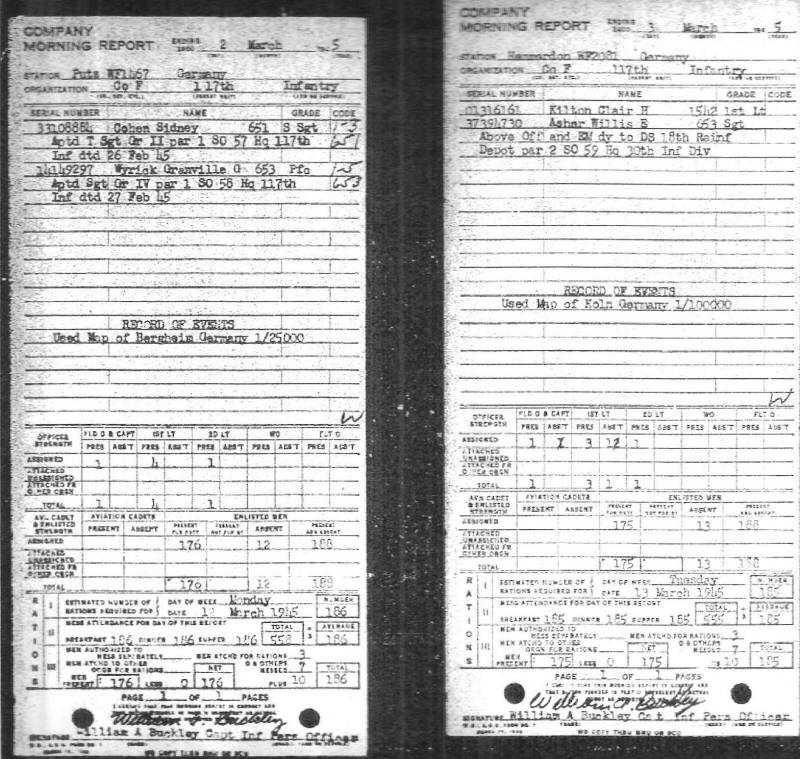 COMPANY
MORNING REPORT ENDING 2400 2 March 1945
STATION Putz WF1467 Germany
ORGANIZATION Co F 117th Infantry
SERIAL NUMBER NAME GRADE CODE
33108884 Cohen Sidney 651 S Sgt 1-3
Aptd T Sgt Gr II par 1 SO 57 Hq 117th 651
Inf dtd 26 Feb 45
14149297 Wyrick Granville G 653 Pfc 1-5
Aptd Sgt Gr IV par 1 SO 58 Hq 117th 653
Inf dtd 27 Feb 45
RECORD OF EVENTS
Used Map of Bergheim Germany 1/25000
W
OFFICER STRENGTH FLD O & CAPT 1ST LT 2D LT WO FLT O
PRES ABS'T PRES ABS'T PRES ABS'T PRES ABS'T PRES ABS'T
ASSIGNED 1 4 1
ATTACHED UNASSIGNED
ATTACHED FR OTHER ORGN
TOTAL 1 4 1
AVN CADET & ENLISTED STRENGTH AVIATION CADETS ENLISTED MEN
PRESENT ABSENT PRESENT FOR DUTY PRESENT NOT FOR DY ABSENT PRESENT AND ABSENT
ASSIGNED 176 12 188
ATTACHED UNASSIGNED
ATTACHED FR OTHER ORGN
TOTAL 176 12 188
RATIONS
I ESTIMATED NUMBER OF RATIONS REQUIRED FOR DAY OF WEEK Monday NUMBER
DATE 12 March 1945 186
II MESS ATTENDANCE FOR DAY OF THIS REPORT TOTAL AVERAGE
BREAKFAST 186 DINNER 186 SUPPER 186 558 ÷ 3 186
III MEN AUTHORIZED TO MESS SEPARATELY MEN ATCHD FOR RATIONS 3
MEN ATCHD TO OTHER ORGN FOR RATIONS NET O & OTHERS MESSED 7 TOTAL
MEN PRESENT 176 LESS 0 176 PLUS 10 186
PAGE 1 OF 1 PAGES
William A Buckley
SIGNATURE William A Buckley Capt Inf Pers Officer
WD COPY THRU MRU OR PCU
COMPANY
MORNING REPORT ENDING 2400 3 March 1945
STATION WF2081 Germany
ORGANIZATION Co F 117th Infantry
SERIAL NUMBER NAME GRADE CODE
01316161 Kilton Clair H 1542 1st Lt
37394730 Asher Willis E 653 Sgt
Above Off and EM dy to DS 18th Reinf
Depot par 2 SO 59 Hq 30th Inf Div
RECORD OF EVENTS
Used Map of Koln Germany 1/100000
W
OFFICER STRENGTH FLD O & CAPT 1ST LT 2D LT WO FLT O
PRES ABS'T PRES ABS'T PRES ABS'T PRES ABS'T PRES ABS'T
ASSIGNED 1 3 1 1
ATTACHED UNASSIGNED
ATTACHED FR OTHER ORGN
TOTAL 1 3 1 1
AVN CADET & ENLISTED STRENGTH AVIATION CADETS ENLISTED MEN
PRESENT ABSENT PRESENT FOR DUTY PRESENT NOT FOR DY ABSENT PRESENT AND ABSENT
ASSIGNED 175 13 188
ATTACHED UNASSIGNED
ATTACHED FR OTHER ORGN
TOTAL 175 13 188
RATIONS
I ESTIMATED NUMBER OF RATIONS REQUIRED FOR DAY OF WEEK Tuesday NUMBER
DATE 13 March 1945 185
II MESS ATTENDANCE FOR DAY OF THIS REPORT TOTAL AVERAGE
BREAKFAST 185 DINNER 185 SUPPER 185 555 ÷ 3 185
III MEN AUTHORIZED TO MESS SEPARATELY MEN ATCHD FOR RATIONS 3
MEN ATCHD TO OTHER ORGN FOR RATIONS NET O & OTHERS MESSED 7 TOTAL
MEN PRESENT 175 LESS 0 175 PLUS 10 185
PAGE 1 OF 1 PAGES
William A Buckley
SIGNATURE William A Buckley Cpt Inf Pers Officer
WD COPY THRU MRU OR PCU